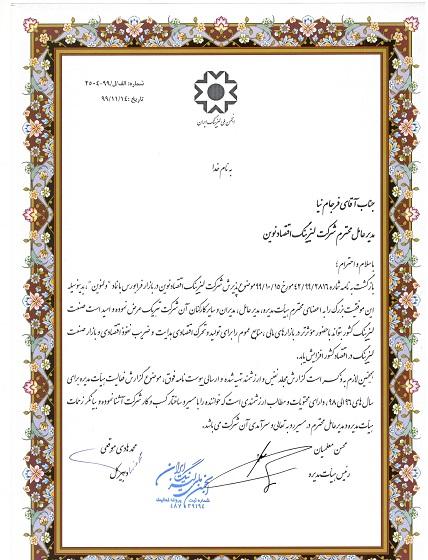 انجمن ملی لیزینگ ایران
شماره: الف/ل/۹۹-۲۵۰۴
تاریخ: ۹۹/۱۱/۱۴
به نام خدا
جناب آقای فرجام نیا
مدیر عامل محترم شرکت لیزینگ اقتصاد نوین
با سلام و احترام؛
بازگشت به نامه شماره ۴۲/۹۹/۲۸۱۶ مورخ ۹۹/۱۰/۱۵ موضوع پذیرش شرکت لیزینگ اقتصاد نوین در بازار فرابورس با نماد "ولنوین"، بدینوسیله
این موفقیت بزرگ را به اعضای محترم هیأت مدیره، مدیر عامل، مدیران و سایر کارکنان آن شرکت تبریک عرض نموده و امید است صنعت
لیزینگ کشور بتواند با حضور مؤثرتر در بازارهای مالی، منابع عموم را برای تولید و تحرک اقتصادی هدایت و ضریب نفوذ اقتصادی و بازار صنعت
لیزینگ در اقتصاد کشور افزایش یابد.
همچنین لازم به ذکر است گزارش مجلد نفیس و ارزشمند تهیه شده و ارسالی پیوست نامه فوق، موضوع گزارش فعالیت هیأت مدیره برای
سال های ۹۶ الی ۹۸، دارای محتویات و مطالب ارزشمندی است که خواننده را با مسیر و ساختار کسب و کار شرکت آشنا نموده و بیانگر زحمات
هیأت مدیره و مدیر عامل محترم در مسیر رو به تعالی و سرآمدی آن شرکت می باشد.
محسن معلمیان
رئیس هیأت مدیره
محمد هادی موقعی
دبیر کل
انجمن ملی لیزینگ ایران
شماره ثبت
پروانه فعالیت